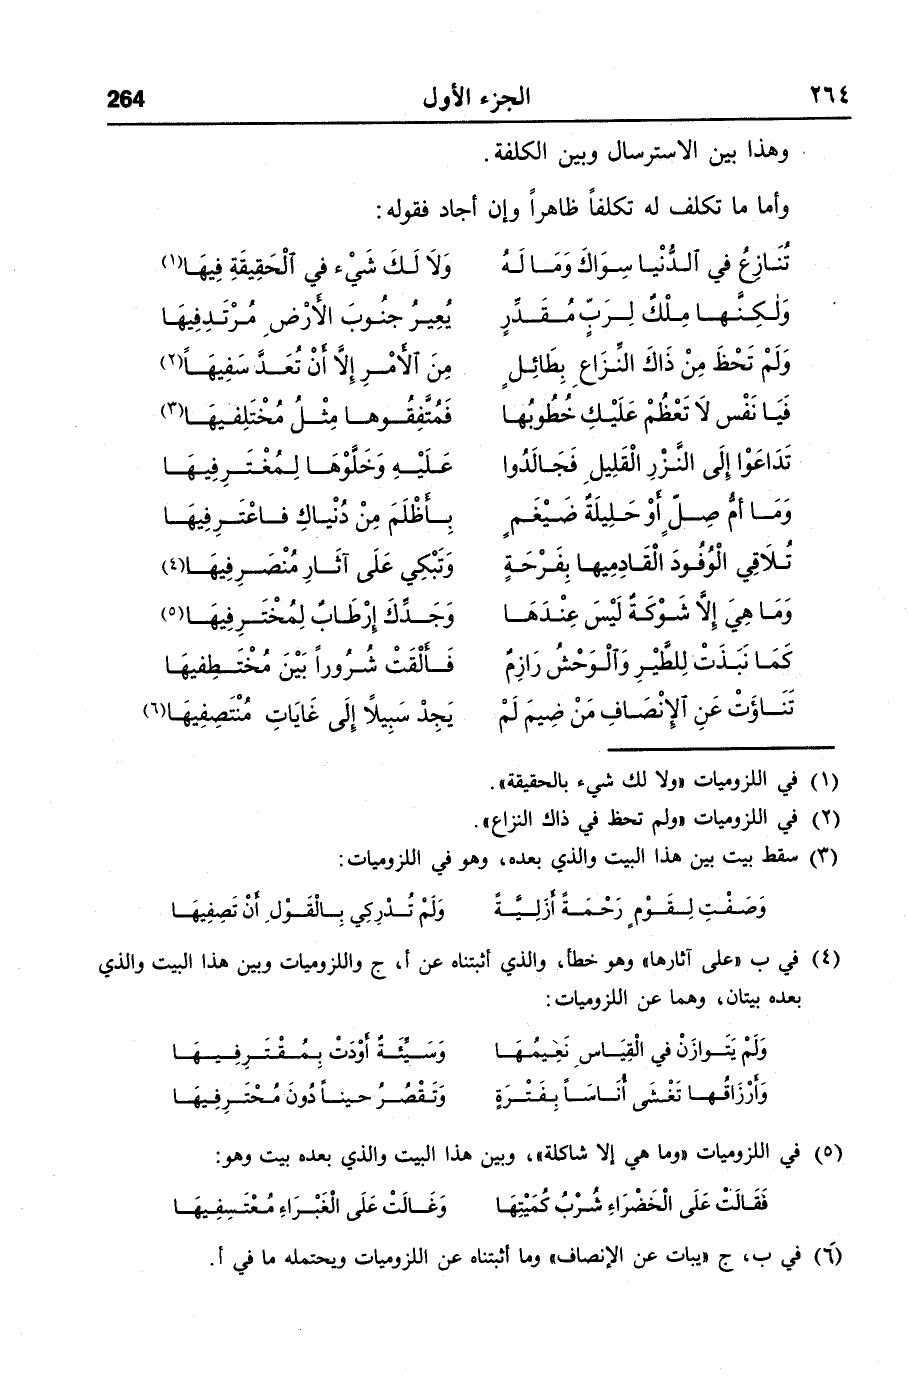 ٢٦٤ الجزء الأول 264
وهذا بين الاسترسال وبين الكلفة.
وأما ما تكلف له تكلفاً ظاهراً وإن أجاد فقوله:
تُنَازِعُ في ٱلدُّنْيا سِوَاكَ وَمَا لَهُ وَلَا لَكَ شَيْء في ٱلْحَقِيقَةِ فِيهَا(١)
وَلٰكِنَّهَا مِلْكٌ لِرَبٍّ مُقَدِّرٍ يُعِيرُ جنُوبَ الأَرْضِ مُرْتَدِفِيهَا
وَلَمْ تَحْظَ مِنْ ذَاكَ النِّزَاعِ بِطَائِلٍ مِنَ ٱلأَمْرِ إلَّا أَنْ تُعَدَّ سَفِيهَاً(٢)
فَيَا نَفْس لَا تَعْظُمْ عَلَيْكِ خُطُوبُهَا فَمُتَّفِقُوها مِثْلُ مُخْتَلِفِيهَا(٣)
تَدَاعَوْا إلَى النَّزْرِ الْقَلِيلِ فَجَالَدُوا عَلَيْهِ وَخَلَّوْهَا لِمُغْتَرِفِيهَا
وَمَا أمُّ صِلٍّ أَوْ حَلِيلَةُ ضَيْغَمٍ بِأَظْلَمَ مِنْ دُنْياكِ فاعْتَرِفِيهَا
تُلَاقِي الْوُفُودَ الْقَادِمِيها بِفَرْحَةٍ وَتَبْكِي عَلَى آثَارِ مُنْصَرِفِيهَا(٤)
وَمَا هِيَ إلَّا شَوْكَةٌ لَيْسَ عِنْدَهَا وَجَدِّكَ إرْطَابٌ لِمُخْتَرِفِيهَا(٥)
كَمَا نَبَذَتْ لِلطَّيْرِ وَٱلْوَحْشِ رَازِمٌ فَأَلْقَتْ شُرُوراً بَيْنَ مُخْتَطِفِيهَا
تَنَاؤَتْ عَنِ ٱلإنْصَافِ مَنْ ضِيمَ لَمْ يَجِدْ سَبِيلًا إلَى غَايَاتِ مُنْتَصِفِيهَا(٦)
(١) في اللزوميات «ولا لك شيء بالحقيقة».
(٢) في اللزوميات «ولم تحظ في ذاك النزاع».
(٣) سقط بيت بين هذا البيت والذي بعده، وهو في اللزوميات:
وَصَفْتِ لِقَوْمٍ رَحْمَةً أَزَلِيَّةً وَلَمْ تُدْرِكِي بِالْقَوْلِ أَنْ تَصِفِيهَا
(٤) في ب «على آثارها» وهو خطأ، والذي أثبتناه عن أ، ج واللزوميات وبين هذا البيت والذي
بعده بيتان، وهما عن اللزوميات:
وَلَمْ يَتَوازَنْ في الْقِيَاسِ نَعِيمُهَا وَسَيِّئَةٌ أَوْدَتْ بِمُقْتَرِفِيهَا
وَأَرْزَاقُهَا تَغْشَى أُنَاسَاً بِفَتْرَةٍ وَتَقْصُرُ حيناً دُونَ مُحْتَرِفِيهَا
(٥) في اللزوميات «وما هي إلا شاكلة»، وبين هذا البيت والذي بعده بيت وهو:
فَقَالَتْ عَلَى الْخَضْرَاءِ شُرْبُ كُمَيْتِهَا وَغَالَتْ عَلَى الْغَبْرَاءِ مُعْتَسِفِيهَا
(٦) في ب، ج «يبات عن الإنصاف» وما أثبتناه عن اللزوميات ويحتمله ما في أ.